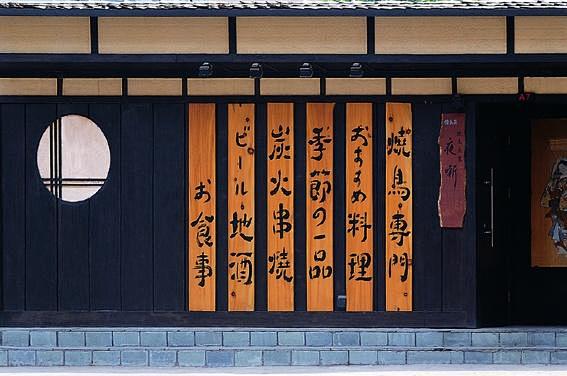 焼鳥・専門。
おすすめ料理
季節の一品
炭火串焼
・ビール・地酒・
お食事
夜噺
A7